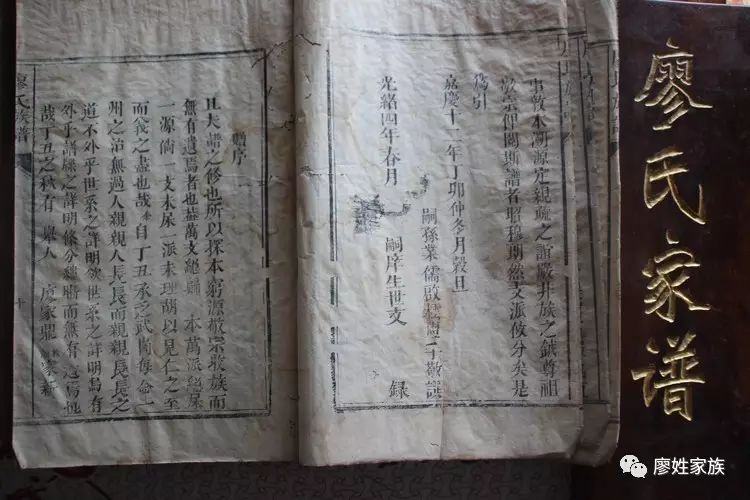 事敦本溯源定親疏之誼嚴井族之錶尊祖
敬宗俾閱斯譜者昭穆朗然支派攸分矣是
為引
嘉慶十二年丁卯仲冬月穀旦
嗣孫業儒啟
敬譔
光緒四年春月
嗣庠生世文
錄
廖氏族譜
贈序
且夫譜之修也所以探本窮源敬宗收族而
無有遺焉者也蓋萬支總歸一本萬派總屬
一源倘一支未
一派未理胡以見仁之至
而義之盡也哉
自丁丑承乏武岡每念一
州之治無過人親親人長長而親親長長之
道不外乎世系之詳明欲世系之詳明
有
外乎譜牒之詳明條分縷晰而無有
哉丁丑之秋有
舉人
廖家鼎
家新
廖氏家谱
廖姓家族